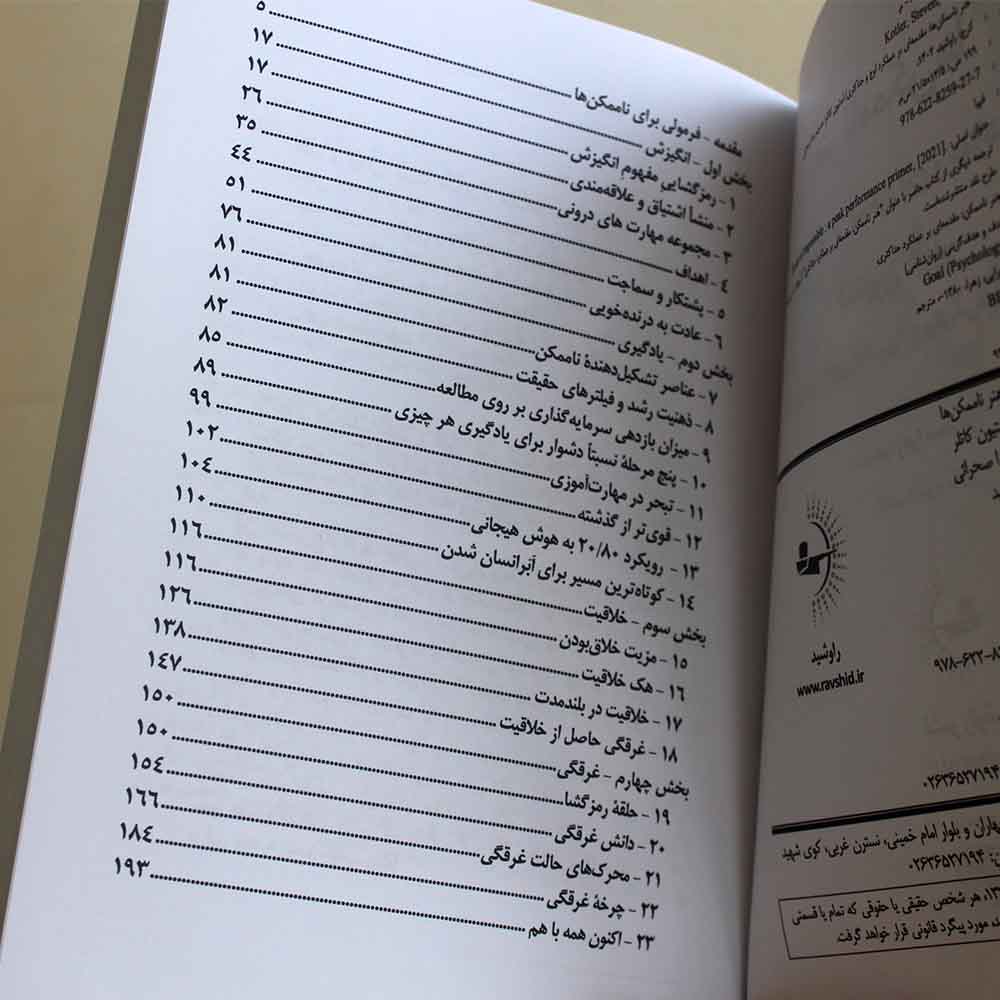 مقدمه - فرمولی برای ناممکن‌ها ۵
بخش اول - انگیزش ۱۷
۱ - رمزگشایی مفهوم انگیزش ۱۷
۲ - منشأ اشتیاق و علاقه‌مندی ۲۶
۳ - مجموعه مهارت های درونی ۳۵
۴ - اهداف ۴۴
۵ - پشتکار و سماجت ۵۱
۶ - عادت به درنده‌خویی ۷۶
بخش دوم - یادگیری ۸۱
۷ - عناصر تشکیل‌دهندهٔ ناممکن ۸۱
۸ - ذهنیت رشد و فیلترهای حقیقت ۸۲
۹ - میزان بازدهی سرمایه‌گذاری بر روی مطالعه ۸۵
۱۰ - پنج مرحلهٔ نسبتاً دشوار برای یادگیری هر چیزی ۸۹
۱۱ - تبحر در مهارت‌آموزی ۹۹
۱۲ - قوی‌تر از گذشته ۱۰۲
۱۳ - رویکرد ۲۰/۸۰ به هوش هیجانی ۱۰۴
۱۴ - کوتاه‌ترین مسیر برای اَبَرانسان شدن ۱۱۰
بخش سوم - خلاقیت ۱۱۶
۱۵ - مزیت خلاق‌بودن ۱۱۶
۱۶ - هک خلاقیت ۱۲۶
۱۷ - خلاقیت در بلندمدت ۱۳۸
۱۸ - غرقگی حاصل از خلاقیت ۱۴۷
بخش چهارم - غرقگی ۱۵۰
۱۹ - حلقهٔ رمزگشا ۱۵۰
۲۰ - دانش غرقگی ۱۵۴
۲۱ - محرک‌های حالت غرقگی ۱۶۶
۲۲ - چرخهٔ غرقگی ۱۸۴
۲۳ - اکنون همه با هم ۱۹۳
Kotler, Steven
کرج: راوشید، ۱۴۰۲.
978-622-8259-27-7
فیپا
عنوان اصلی: a peak performance primer, [2021].
Goal (Psychology
ناممکن‌ها
کاتلر
صحرائی
راوشید
www.ravshid.ir
۰۲۶۳۶۵۲۷۱۹۴
و بلوار امام خمینی، نسترن غربی، کوی شهید
۰۲۶۳۶۵۲۷۱۹۴
هر شخص حقیقی یا حقوقی که تمام یا قسمتی
مورد پیگرد قانونی قرار خواهد گرفت.